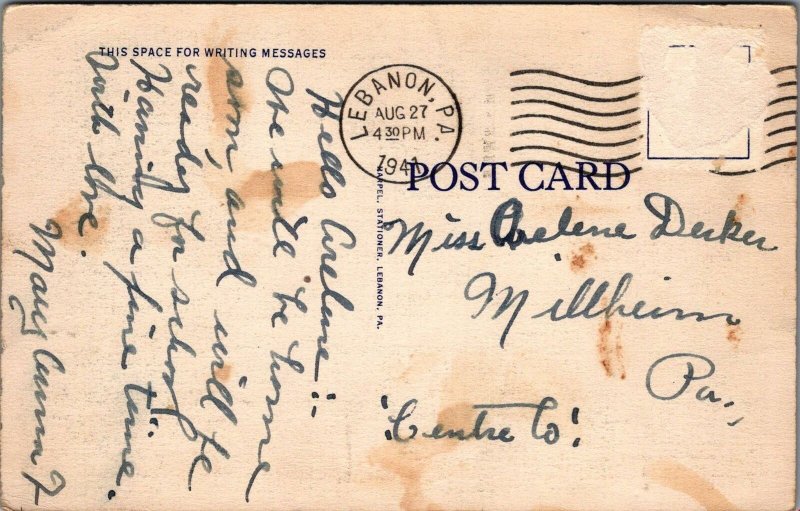 THIS SPACE FOR WRITING MESSAGES
Hello Arelene:-
We will be home
som, and will be
ready for school
Having a fine time.
With love.
Mary Anna F
LEBANON, PA.
AUG 27
4 30 PM
1941
POST CARD
HARPEL, STATIONER, LEBANON, PA.
Miss Arelene Decker
Millheim
Pa.,
"Centre Co."